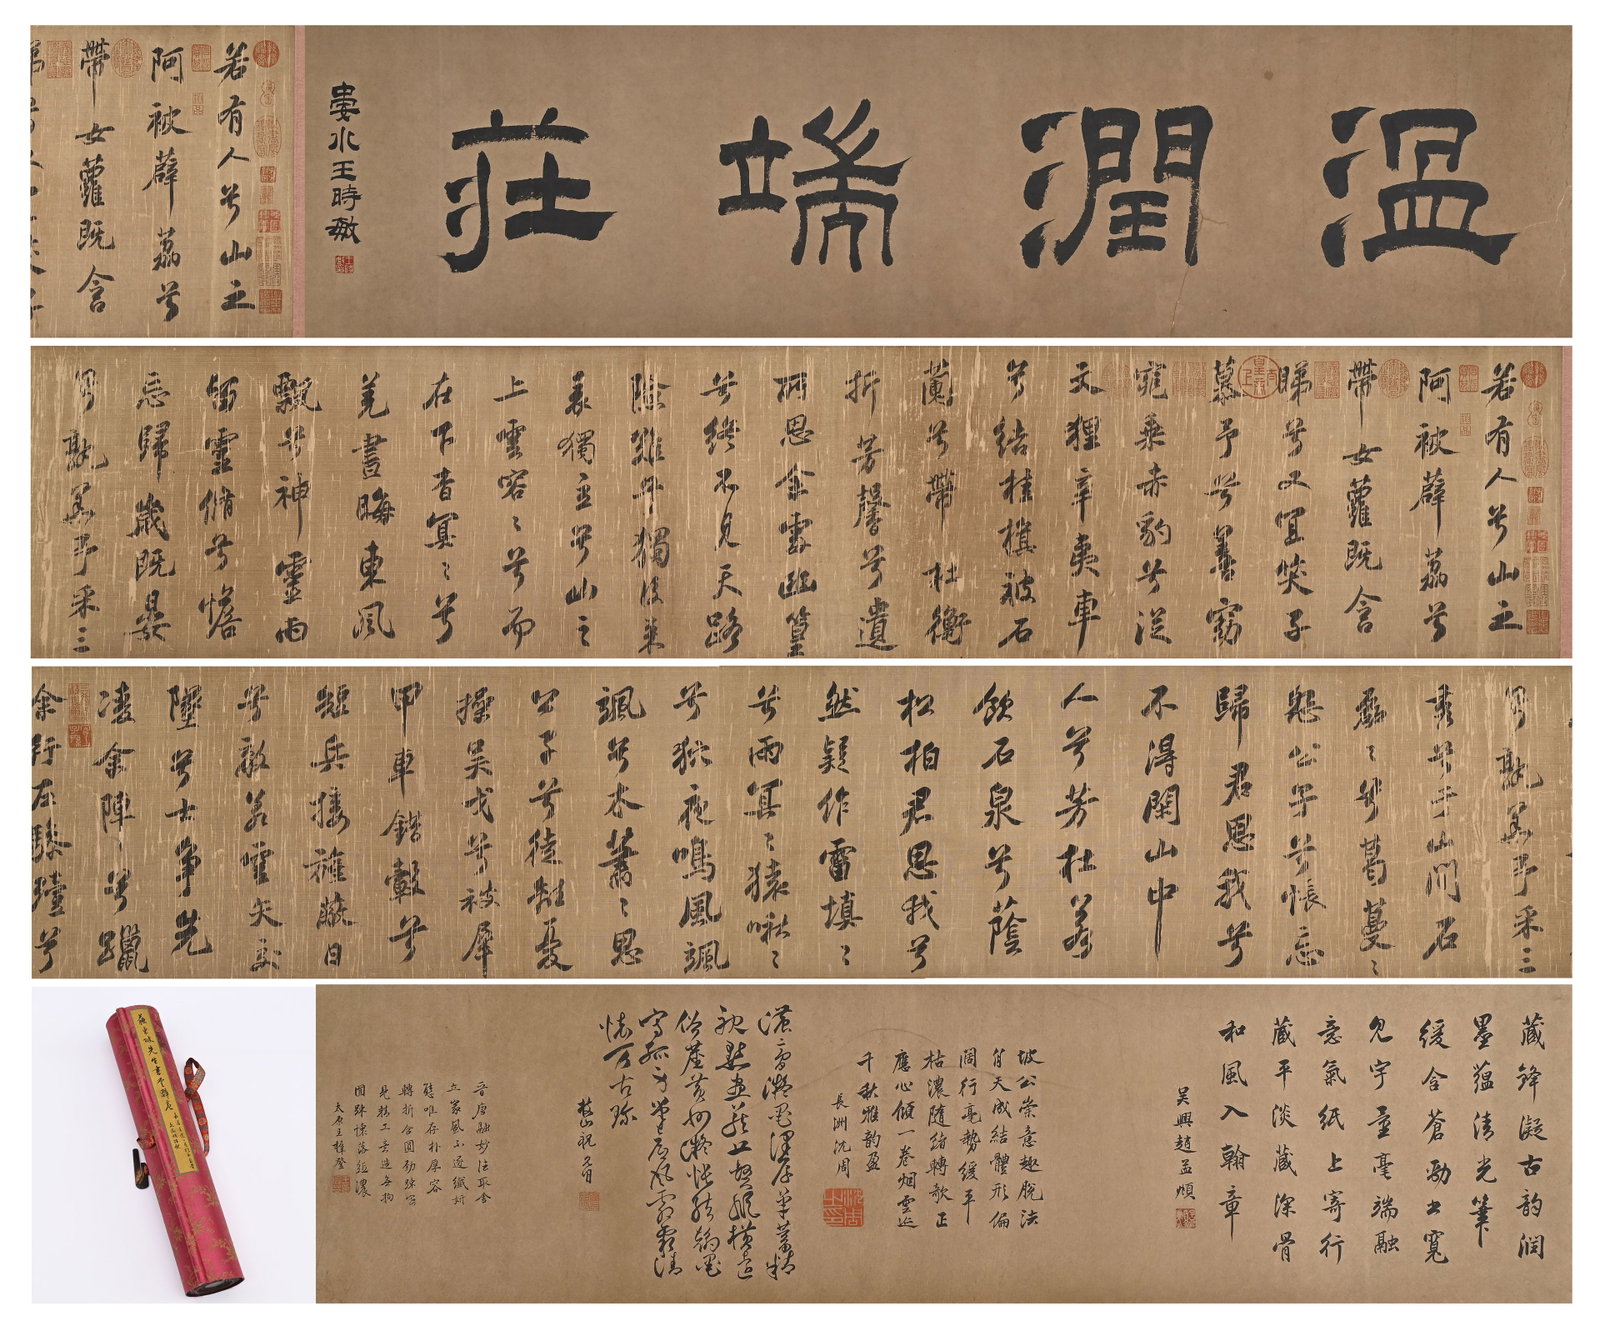 溫潤端莊
婁水王時敏
若有人兮山之
阿被薜荔兮
帶女蘿既含
若有人兮山之
阿被薜荔兮
帶女蘿既含
睇兮又宜笑子
慕予兮善窈
窕乘赤豹兮從
文狸辛夷車
兮結桂旗被石
蘭兮帶杜衡
折芳馨兮遺
所思余處幽篁
兮終不見天路
險難兮獨後來
表獨立兮山之
上雲容〻兮而
在下杳冥〻兮
羌晝晦東風
飄兮神靈雨
留靈脩兮憺
忘歸歲既晏
兮孰華予采三
兮孰華予采三
秀兮于山間石
磊〻兮葛蔓〻
怨公子兮悵忘
歸君思我兮
不得閑山中
人兮芳杜若
飲石泉兮蔭
松柏君思我兮
然疑作雷填〻
兮雨冥〻猿啾〻
兮狖夜鳴風颯
颯兮木蕭〻思
公子兮徒離憂
操吳戈兮被犀
甲車錯轂兮
短兵接旌蔽日
兮敵若雲矢交
墜兮士爭先
凌余陣兮躐
余行左驂殪兮
藏鋒凝古韵潤
墨蘊清光筆
緩含蒼勁出寬
見字重毫端融
意氣紙上寄行
藏平淡藏深骨
和風入翰章
吳興趙孟頫
坡公崇意趣脫法
自天成結體形偏
闊行毫勢緩平
枯濃隨緒轉欹正
應心傾一卷烟雲逝
千秋雅韵盈
長洲沈周
枝山祝允明
晉唐融妙法取舍
立家風不逐纖妍
態唯存朴厚容
轉折含圓勁疎密
太原王穉登